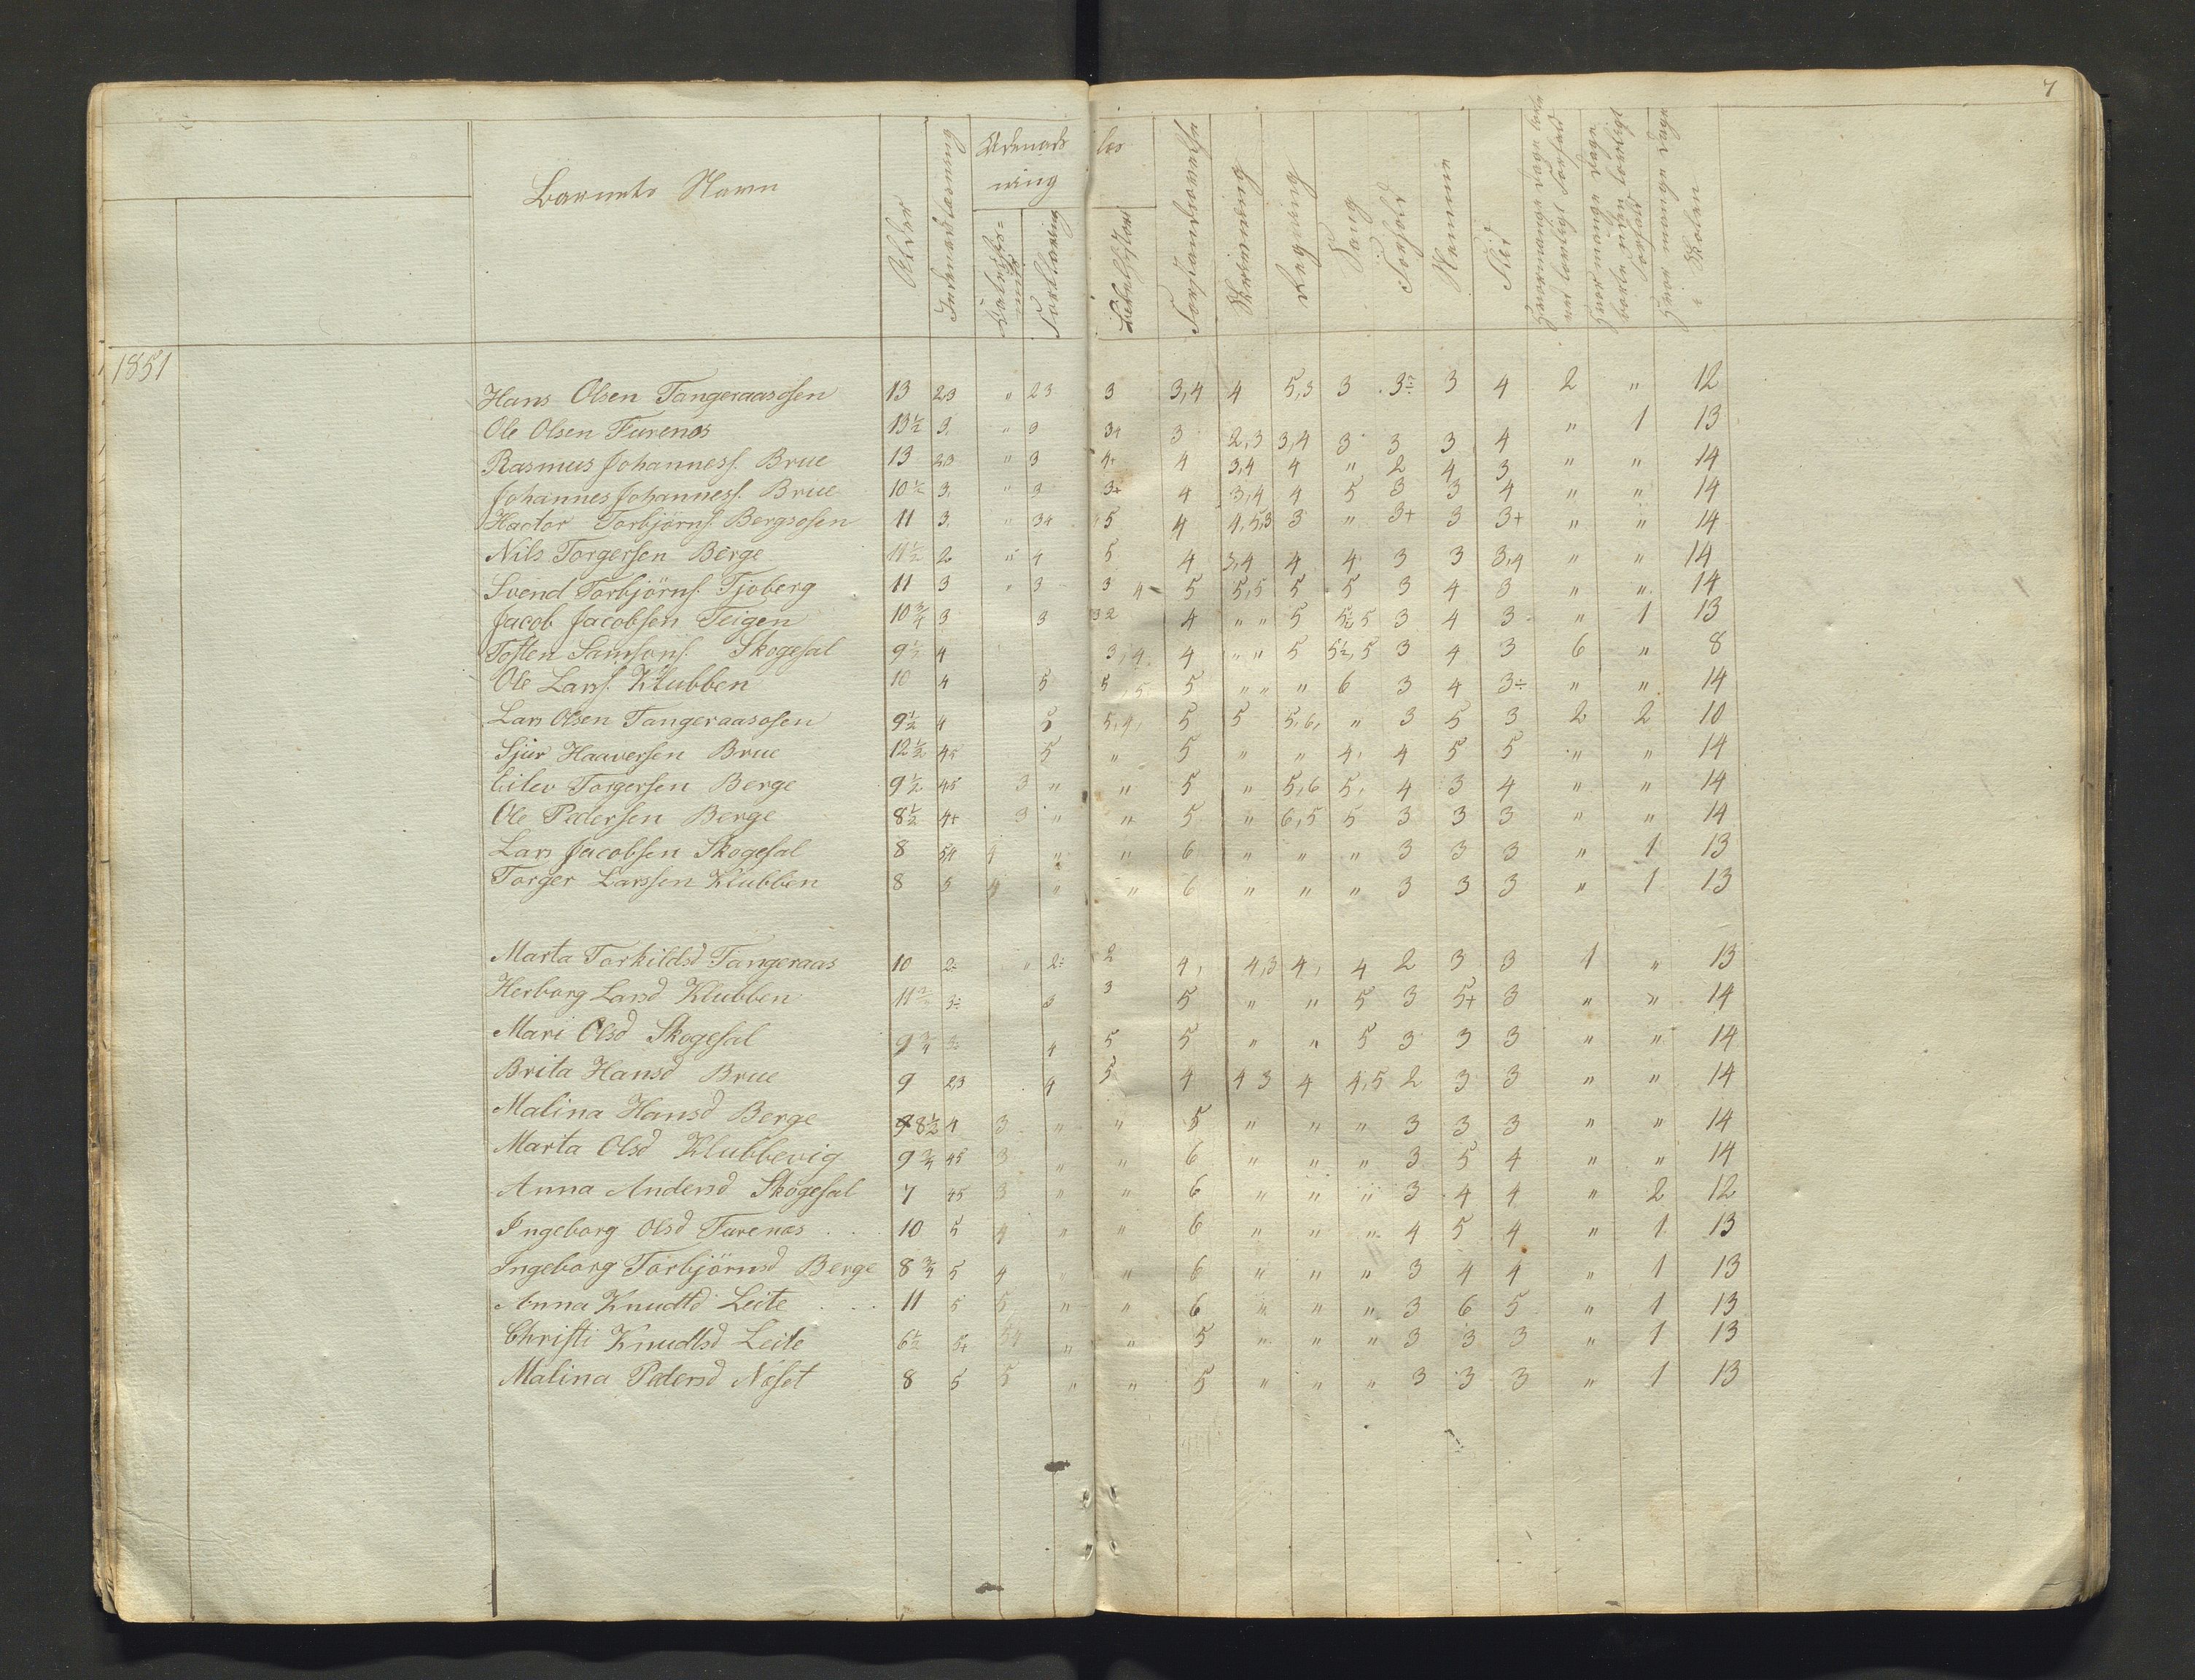 7
Barnets Navn Alder Indenadslæsning Udenads læs
ning
Forklaring Bibelhistorie Forstandsøvelse Skrivning Regning Sang Forhold Nemme Flid Hvormange dage borte ved lovligt Forfald Hvor mange dage borte uden lovligt Forfald Hvor mange dage i Skolen
1851
Hans Olsen Tangeraasosen 13 23 " 23 3 3,4 4 5,3 3 3÷ 3 4 2 " 12
Ole Olsen Furenes 13½ 3. " 3 3+ 3 2,3 3,4 3 3 3 4 " 1 13
Rasmus Johanness. Brue 13 23 " 3 4+ 4 3,4 4 " 2 4 3 " " 14
Johannes Johanness. Brue 10½ 3. " 3 3+ 4 3,4 4 5 3 3 4 " " 14
Hactor Torbjörns. Bergsosen 11 3. " 34 5 4 4,5,3 3 " 3+ 3 3+ " " 14
Nils Torgersen Berge 11½ 2 " 4 5 4 3,4 4 4 3 3 3,4 " " 14
Svend Torbjörns. Tjoberg 11 3 " 3 3 4 5 5,5 5 5 3 4 3 " " 14
Jacob Jacobsen Teigen 10¾ 3 3 32 4 " " 5 5½ 5 3 4 3 " 1 13
Tosten Samsons. Skogesal 9½ 4 3,4 4 " " 5 5½,5 3 4 3 6 " 8
Ole Lars. Klubben 10 4 5 5,5 5 " " " 6 3 4 3÷ " " 14
Lars Olsen Tangeraasosen 9½ 4 5 5,4, 5 5 5,6, " 3 5 3 2 2 10
Sjur Haaversen Brue 12½ 45 5 " 5 " " 4, 4 5 5 " " 14
Eilev Torgersen Berge 9½ 45 3 " " 5 " 5,6 5, 4 3 4 " " 14
Ole Pedersen Berge 8½ 4+ 3 " " 5 " 6,5 5 3 3 3 " " 14
Lars Jacobsen Skogesal 8 54 4 " " 6 " " " 3 3 3 " 1 13
Torger Larssen Klubben 8 5 4 " " 6 " " " 3 3 3 " 1 13
Marta Torkildsd Tangeraas 10 2÷ " 2÷ 2 4, 4,3 4, 4 2 3 3 1 " 13
Herborg Larsd Klubben 11½ 3÷ 3 3 5 " " 5 3 5+ 3 " " 14
Mari Olsd Skogesal 9¾ 3÷ 4 5 5 " " 5 3 3 3 " " 14
Brita Hansd Brue 9 23 4 5 4 4 3 4 4,5 2 3 3 " " 14
Malina Hansd Berge 8½ 4 3 " " 5 " " " 3 3 3 " " 14
Marta Olsd Klubbevig 9¾ 45 3 " " 6 " " " 3 5 4 " " 14
Anna Andersd Skogesal 7 45 3 " " 6 " " " 3 4 4 " 2 12
Ingeborg Olsd Furenes 10 5 4 " " 6 " " " 4 5 4 " 1 13
Ingeborg Torbjörnsd Berge 8¾ 5 4 " " 6 " " " 3 4 4 " 1 13
Anna Knudtd Leite 11 5 5 " " 6 " " " 3 6 5 " 1 13
Christi Knudtsd Leite 6½ 5+ 54 " " 5 " " " 3 3 3 " 1 13
Malina Pedersd Neset 8 5 5 " " 5 " " " 3 3 3 " 1 13